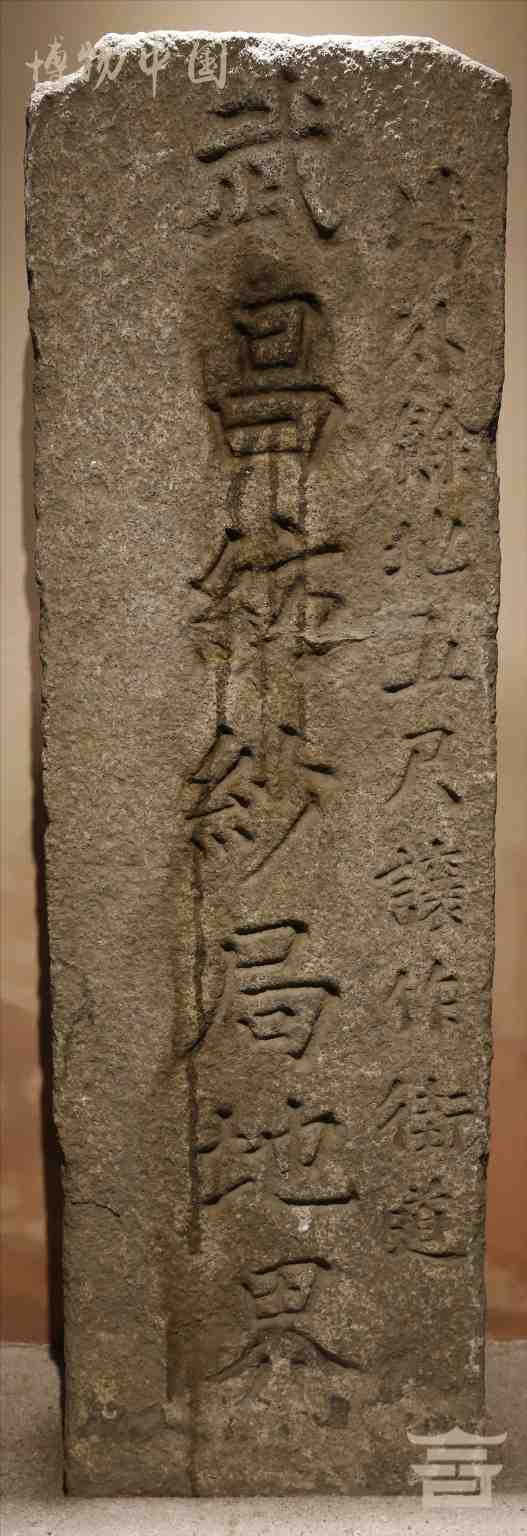 博物中国
外餘地五尺讓作街道
武昌紡紗局地界